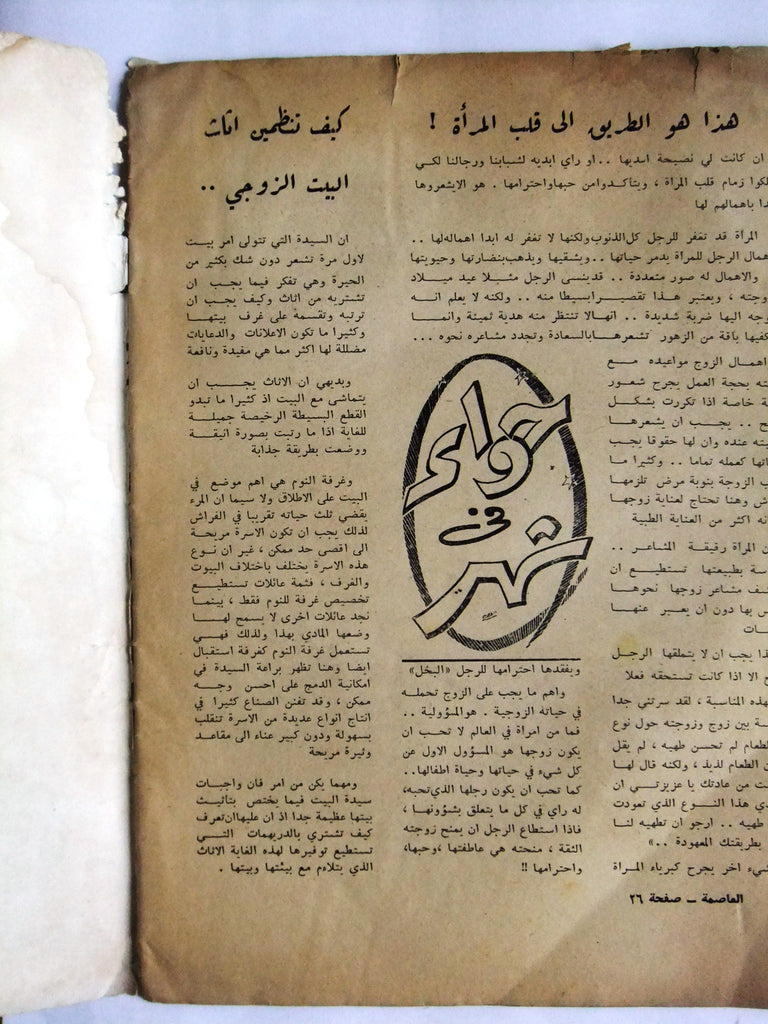 هذا هو الطريق الى قلب المرأة !
ان كانت لي نصيحة اسديها . . او راي ابديه لشبابنا ورجالنا لكي
لكوا زمام قلب المراة ، ويتأكدوا من حبها واحترامها . هو الايشعروها
دا باهمالهم لها
المرأة قد تغفر للرجل كل الذنوب ولكنها لا تغفر له ابدا اهماله لها . .
همال الرجل للمرأة يدمر حياتها . . ويشقيها ويذهب بنضارتها وحيويتها
والاهمال له صور متعددة . . قد ينسى الرجل مثلا عيد ميلاد
وجته ، ويعتبر هذا تقصيرا بسيطا منه . . ولكنه لا يعلم انه
وجه اليها ضربة شديدة . . انها لا تنتظر منه هدية ثمينة وانما
كفيها باقة من الزهور تشعرها بالسعادة وتجدد مشاعره نحوه . . .
اهمال الزوج مواعيده مع
ته بحجة العمل يجرح شعور
ة خاصة اذا تكررت بشكل
ح . . يجب ان يشعرها
يته عنده وان لها حقوقا يجب
اتها كعمله تماما . . وكثيرا ما
ب الزوجة بنوبة مرض تلزمها
ش وهنا تحتاج لعناية زوجها
نه اكثر من العناية الطبية
ن المراة رقيقة المشاعر . .
سة بطبيعتها تستطيع ان
شف مشاعر زوجها نحوها
س بها دون ان يعبر عنها
ات
ذا يجب ان لا يتملقها الرجل
ح الا اذا كانت تستحقه فعلا
هذه المناسبة ، لقد سرتني جدا
سة بين زوج وزوجته حول نوع
لطعام لم تحسن طهيه ، لم يقل
ن الطعام لذيذ ، ولكنه قال لها
ت من عادتك يا عزيزتي ان
ي هذا النوع الذي تعودت
طهيه . . ارجو ان تطهيه لنا
بطريقتك المعهودة . . »
شيء اخر يجرح كبرياء المراة
حواء
في
شهر
ويفقدها احترامها للرجل «البخل»
واهم ما يجب على الزوج تحمله
في حياته الزوجية . هو المسؤولية . .
فما من امراة في العالم لا تحب ان
يكون زوجها هو المسؤول الاول عن
كل شيء في حياتها وحياة اطفالها . .
كما تحب ان يكون رجلها الذي تحبه ،
له راي في كل ما يتعلق بشؤونها ،
فاذا استطاع الرجل ان يمنح زوجته
الثقة ، منحته هي عاطفتها ، وحبها ،
واحترامها !!
كيف تنظمين اثاث
البيت الزوجي . .
ان السيدة التي تتولى امر بيت
لاول مرة تشعر دون شك بكثير من
الحيرة وهي تفكر فيما يجب ان
تشتريه من اثاث وكيف يجب ان
ترتبه وتقسمه على غرف بيتها
وكثيرا ما تكون الاعلانات والدعايات
مضللة لها اكثر مما هي مفيدة ونافعة
وبديهي ان الاثاث يجب ان
يتماشى مع البيت اذ كثيرا ما تبدو
القطع البسيطة الرخيصة جميلة
للغاية اذا ما رتبت بصورة انيقة
ووضعت بطريقة جذابة
وغرفة النوم هي اهم موضع في
البيت على الاطلاق ولا سيما ان المرء
يقضي ثلث حياته تقريبا في الفراش
لذلك يجب ان تكون الاسرة مريحة
الى اقصى حد ممكن ، غير ان نوع
هذه الاسرة يختلف باختلاف البيوت
والغرف ، فثمة عائلات تستطيع
تخصيص غرفة للنوم فقط ، بينما
نجد عائلات اخرى لا يسمح لها
وضعها المادي بهذا ولذلك فهي
تستعمل غرفة النوم كغرفة استقبال
ايضا وهنا تظهر براعة السيدة في
امكانية الدمج على احسن وجه
ممكن ، وقد تفنن الصناع كثيرا في
انتاج انواع عديدة من الاسرة تنقلب
بسهولة ودون كبير عناء الى مقاعد
وثيرة مريحة
ومهما يكن من امر فان واجبات
سيدة البيت فيما يختص بتأثيث
بيتها عظيمة جدا اذ ان عليها ان تعرف
كيف تشتري بالدريهمات التي
تستطيع توفيرها لهذه الغاية الاثاث
الذي يتلاءم مع بيئتها وبيتها .
العاصمة ــ صفحة ٢٦